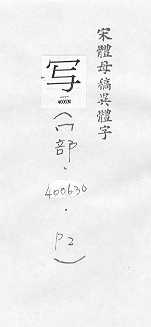 宋體母稿異體字
写
(冖部.
400630
.
P2
)